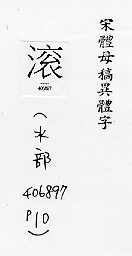 宋體母稿異體字
滚
40897
(水部
406897
P10)